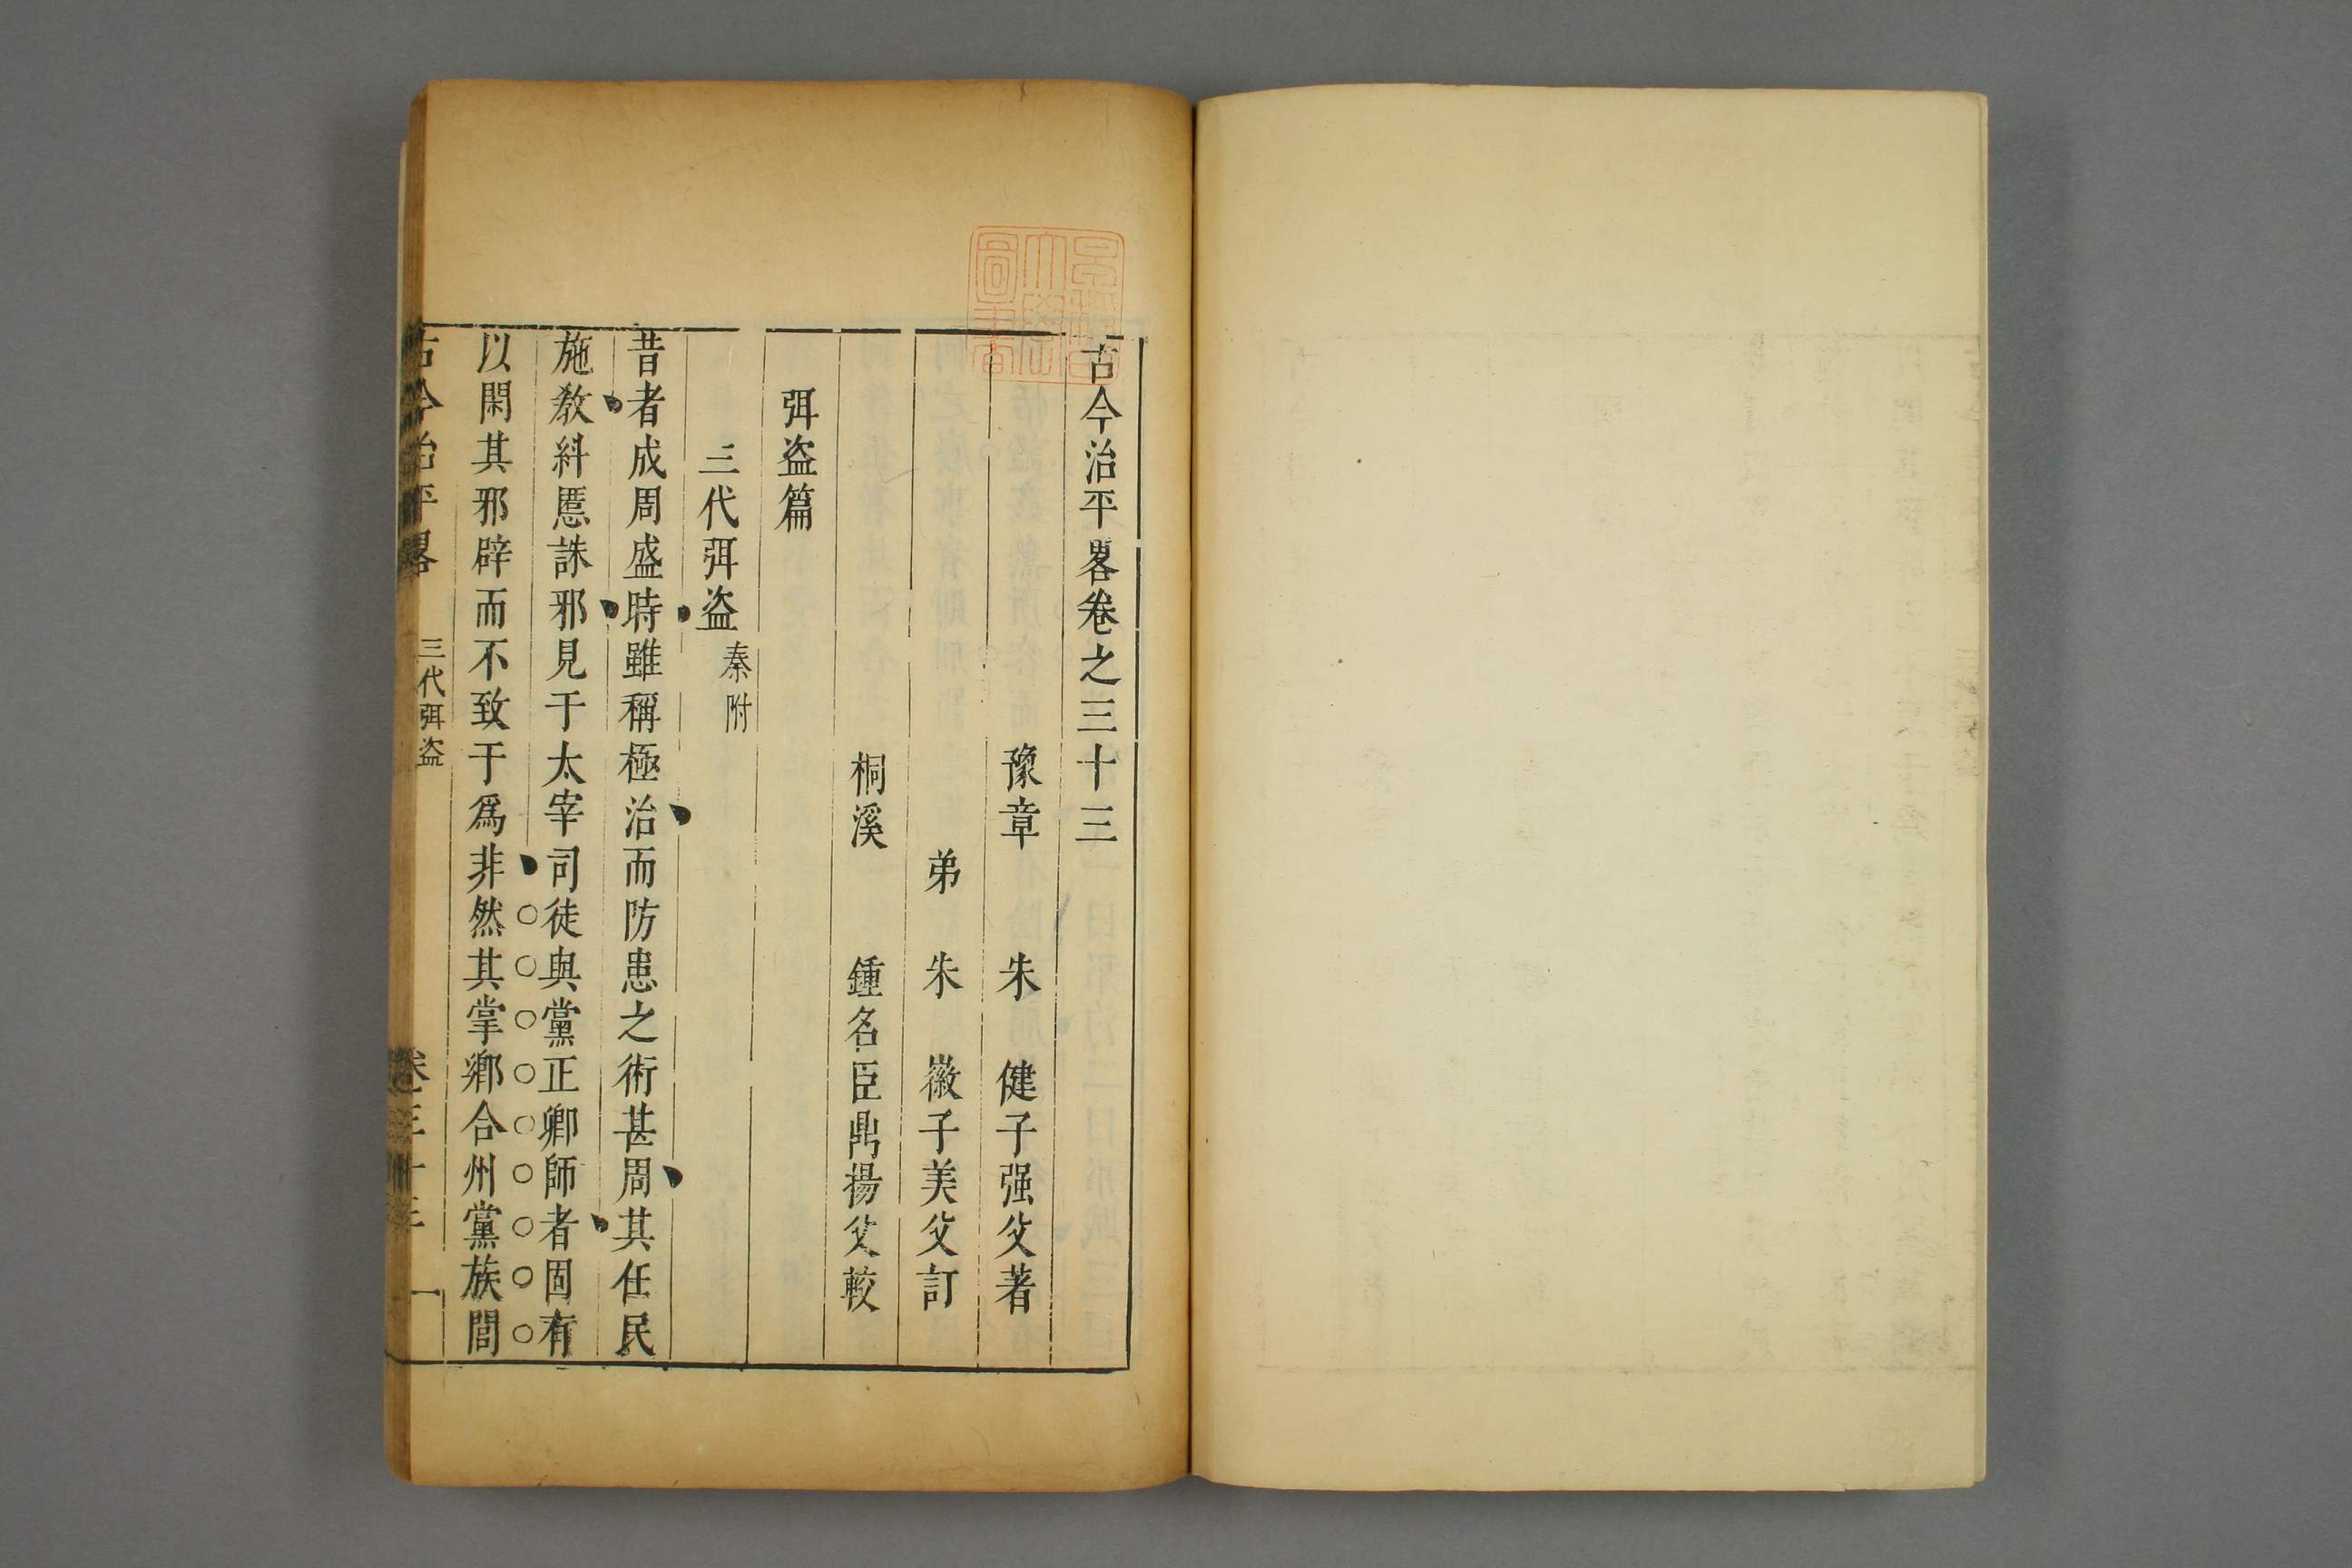 古今治平畧卷之三十三
豫章 朱 健子强父著
弟 朱 徽子美父訂
桐溪 鍾名臣鼎揚父較
弭盜篇
三代弭盜 秦附
昔者成周盛時雖稱極治而防患之術甚周其任民
施教糾慝誅邪見于太宰司徒與黨正鄉師者固有
以閑其邪辟而不致于爲非然其掌鄉合州黨族閭
古今治平畧 三代弭盜 卷三十三 一